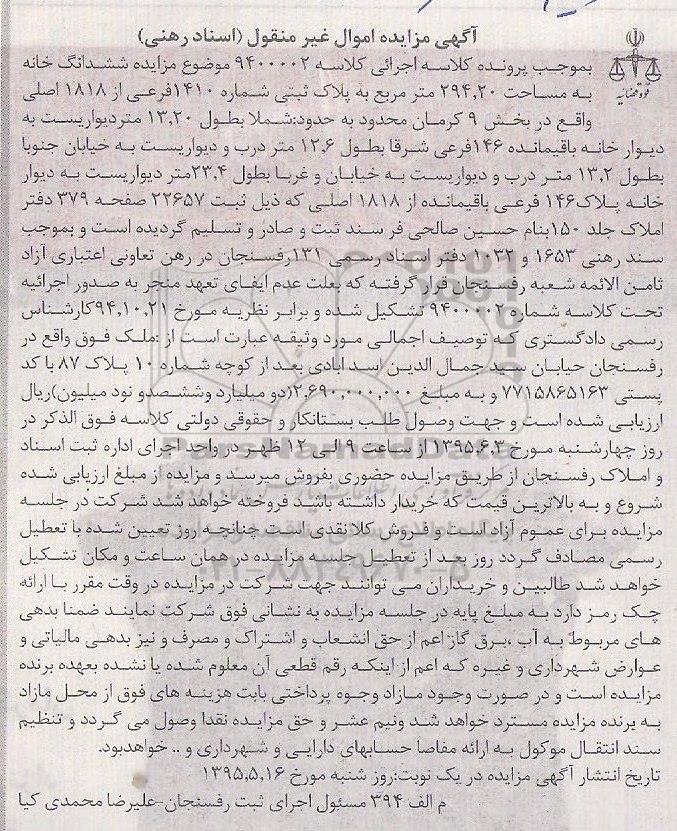 آگهی مزایده اموال غیر منقول (اسناد رهنی)
قوه قضائیه
بموجب پرونده کلاسه اجرائی کلاسه ۹۴۰۰۰۰۲ موضوع مزایده ششدانگ خانه
به مساحت ۲۹۴,۲۰ متر مربع به پلاک ثبتی شماره ۱۴۱۰فرعی از ۱۸۱۸ اصلی
واقع در بخش ۹ کرمان محدود به حدود:شملا بطول ۱۳,۲۰ متردیواریست به
دیوار خانه باقیمانده ۱۴۶فرعی شرقا بطول ۱۲,۶ متر درب و دیواریست به خیابان جنوبا
بطول ۱۳,۲ متر درب و دیواریست به خیابان و غربا بطول ۲۳,۴متر دیواریست به دیوار
خانه پلاک۱۴۶ فرعی باقیمانده از ۱۸۱۸ اصلی که ذیل ثبت ۲۲۶۵۷ صفحه ۳۷۹ دفتر
املاک جلد ۱۵۰بنام حسین صالحی فر سند ثبت و صادر و تسلیم گردیده است و بموجب
سند رهنی ۱۶۵۳ و ۱۰۳۲ دفتر اسناد رسمی ۱۳۱رفسنجان در رهن تعاونی اعتباری آزاد
ثامن الائمه شعبه رفسنجان قرار گرفته که بعلت عدم ایفای تعهد منجر به صدور اجرائیه
تحت کلاسه شماره ۹۴۰۰۰۰۲ تشکیل شده و برابر نظریه مورخ ۹۴,۱۰,۲۱کارشناس
رسمی دادگستری که توصیف اجمالی مورد وثیقه عبارت است از :ملک فوق واقع در
رفسنجان خیابان سید جمال الدین اسد ابادی بعد از کوچه شماره ۱۰ پلاک ۸۷ با کد
پستی ۷۷۱۵۸۶۵۱۶۳ و به مبلغ ۲,۶۹۰,۰۰۰,۰۰۰(دو میلیارد وششصدو نود میلیون)ریال
ارزیابی شده است و جهت وصول طلب بستانکار و حقوقی دولتی کلاسه فوق الذکر در
روز چهارشنبه مورخ ۱۳۹۵,۶,۳از ساعت ۹ الی ۱۲ ظهر در واحد اجرای اداره ثبت اسناد
و املاک رفسنجان از طریق مزایده حضوری بفروش میرسد و مزایده از مبلغ ارزیابی شده
شروع و به بالاترین قیمت که خریدار داشته باشد فروخته خواهد شد شرکت در جلسه
مزایده برای عموم آزاد است و فروش کلا نقدی است چنانچه روز تعیین شده با تعطیل
رسمی مصادف گردد روز بعد از تعطیل جلسه مزایده در همان ساعت و مکان تشکیل
خواهد شد طالبین و خریداران می توانند جهت شرکت در مزایده در وقت مقرر با ارائه
چک رمز دارد به مبلغ پایه در جلسه مزایده به نشانی فوق شرکت نمایند ضمنا بدهی
های مربوط به آب ،برق گاز اعم از حق انشعاب و اشتراک و مصرف و نیز بدهی مالیاتی و
عوارض شهرداری و غیره که اعم از اینکه رقم قطعی آن معلوم شده یا نشده بعهده برنده
مزایده است و در صورت وجود مازاد وجوه پرداختی بابت هزینه های فوق از محل مازاد
به برنده مزایده مسترد خواهد شد ونیم عشر و حق مزایده نقدا وصول می گردد و تنظیم
سند انتقال موکول به ارائه مفاصا حسابهای دارایی و شهرداری و .. خواهدبود.
تاریخ انتشار آگهی مزایده در یک نوبت:روز شنبه مورخ ۱۳۹۵,۵,۱۶
م الف ۳۹۴ مسئول اجرای ثبت رفسنجان-علیرضا محمدی کیا